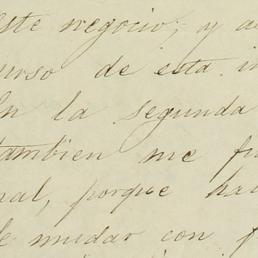 este negocio; y a
urso de esta in
en la segunda
tambien me fu
nal, porque ha
de mudar con p